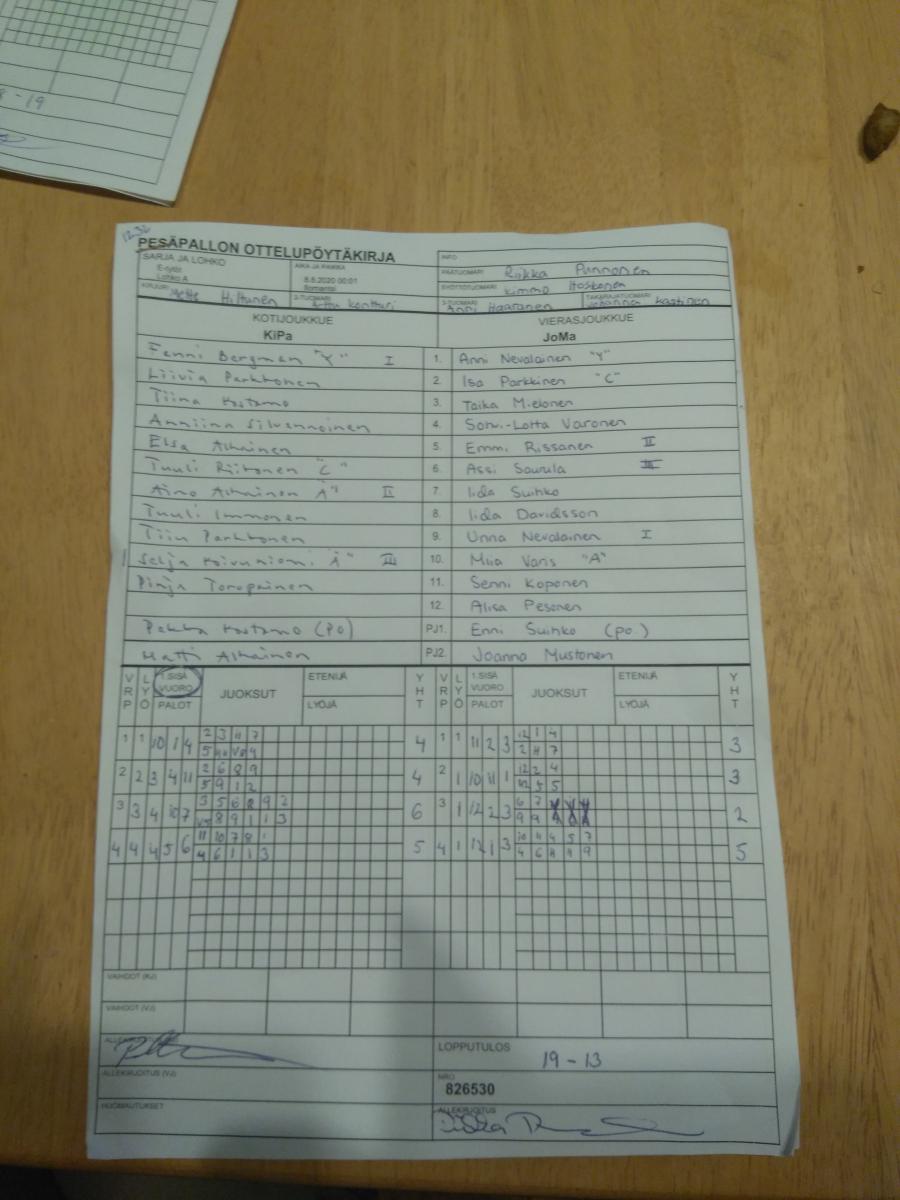 8 - 19
1236
PESÄPALLON OTTELUPÖYTÄKIRJA
SARJA JA LOHKO
E-tytöt
Lohko A
AIKA JA PAIKKA
8.6.2020 00:01
Ilomantsi
INFO
PÄÄTUOMARI Riikka Punnonen
SYÖTTÖTUOMARI Kimmo Itoskonen
KIRJURI Mette Hiltunen
2-TUOMARI Arttu Kontturi
3-TUOMARI Anni Haaranen
TAKARAJATUOMARI Johanna
KOTIJOUKKUE
KiPa
VIERASJOUKKUE
JoMa
Fanni Bergman "Y" I 1. Anni Nevalainen "Y"
Liivia Parkkonen 2. Isa Parkkinen "C"
Tiina Kostamo 3. Taika Mielonen
Anniina Silvennoinen 4. Sohvi-Lotta Varonen
Elsa Alhainen 5. Emmi Rissanen II
Tuuli Riikonen "C" 6. Assi Saurula III
Aino Alhainen "A" II 7. Iida Suihko
Tuuli Immonen 8. Iida Davidsson
Tiin Parkkonen 9. Unna Nevalainen I
Selja Koivuniemi "A" III 10. Miia Varis "A"
Pinja Toropainen 11. Senni Koponen
12. Alisa Pesonen
Pekka Kostamo (PO) PJ1. Enni Suihko (po.)
Matti Alhainen PJ2. Joanna Mustonen
VRP LYÖ 1.SISÄ VUORO PALOT JUOKSUT ETENIJÄ LYÖJÄ YHT VRP LYÖ 1.SISÄ VUORO PALOT JUOKSUT ETENIJÄ LYÖJÄ YHT
1 1 10 1 4 2 3 11 7 4 1 1 11 2 3 12 1 4 3
2 11 7
2 2 3 4 11 2 6 8 9 4 2 1 10 11 1 12 2 4 3
5 9 1 2 12 5 5
3 3 4 10 7 3 5 6 8 9 2 6 3 1 12 2 3 6 7 2
V5 8 9 1 1 3 9 9
4 4 4 5 6 11 10 7 8 1 5 4 1 12 1 3 10 11 4 5 7 5
4 6 1 1 3 4 6 9
VAIHDOT (KJ)
VAIHDOT (VJ)
LOPPUTULOS 19 - 13
ALLEKIRJOITUS (VJ)
NRO
826530
HUOMAUTUKSET
ALLEKIRJOITUS